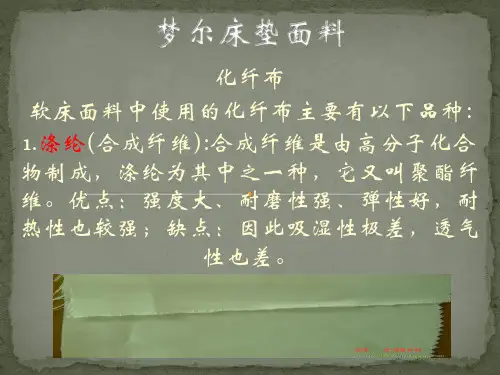 梦尔床垫面料
化纤布
软床面料中使用的化纤布主要有以下品种:
1.涤纶(合成纤维):合成纤维是由高分子化合
物制成，涤纶为其中之一种，它又叫聚酯纤
维。优点：强度大、耐磨性强、弹性好，耐
热性也较强；缺点：因此吸湿性极差，透气
性也差。